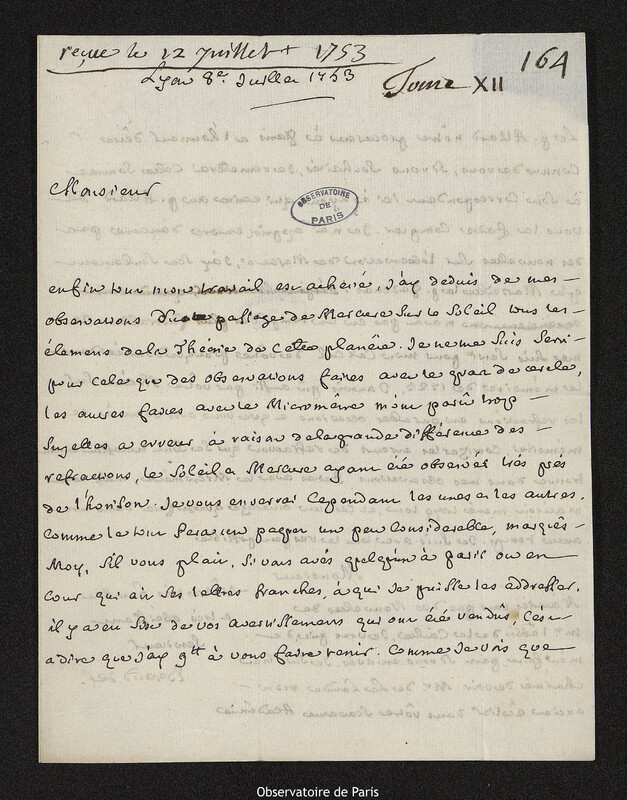 reçue le 12 Juillet 1753
Lyon 8e. Juillet 1753
Tome XII
164
Monsieur
OBSERVATOIRE
DE
PARIS
enfin tout mon travail est achevé, J'ay deduis de mes
observations du passage de Mercure sur le Soleil tous les
élemens de la Théorie de Cette planète. Je ne me suis servi
pour cela que des observations faites avec le quar de cercle,
les autres faites avec le Micromètre m'ont parû trop
Sujettes a erreur à raison de la grande différence des
refractions, le Soleil et Mercure ayant été observés très près
de l'horison. Je vous enverrai Cependant les unes et les autres.
Comme le tout fera un paquet un peu Considerable, marqués
Moy, s'il vous plait, si vous avés quelqu'un à paris ou en
Cour qui ait ses lettres franches, à qui Je puisse les addresser.
il y a eu six de vos avertissemens qui ont été vendûs, C'est
adire que J'ay 9tt à vous faire tenir. Comme Je vois que
Observatoire de Paris